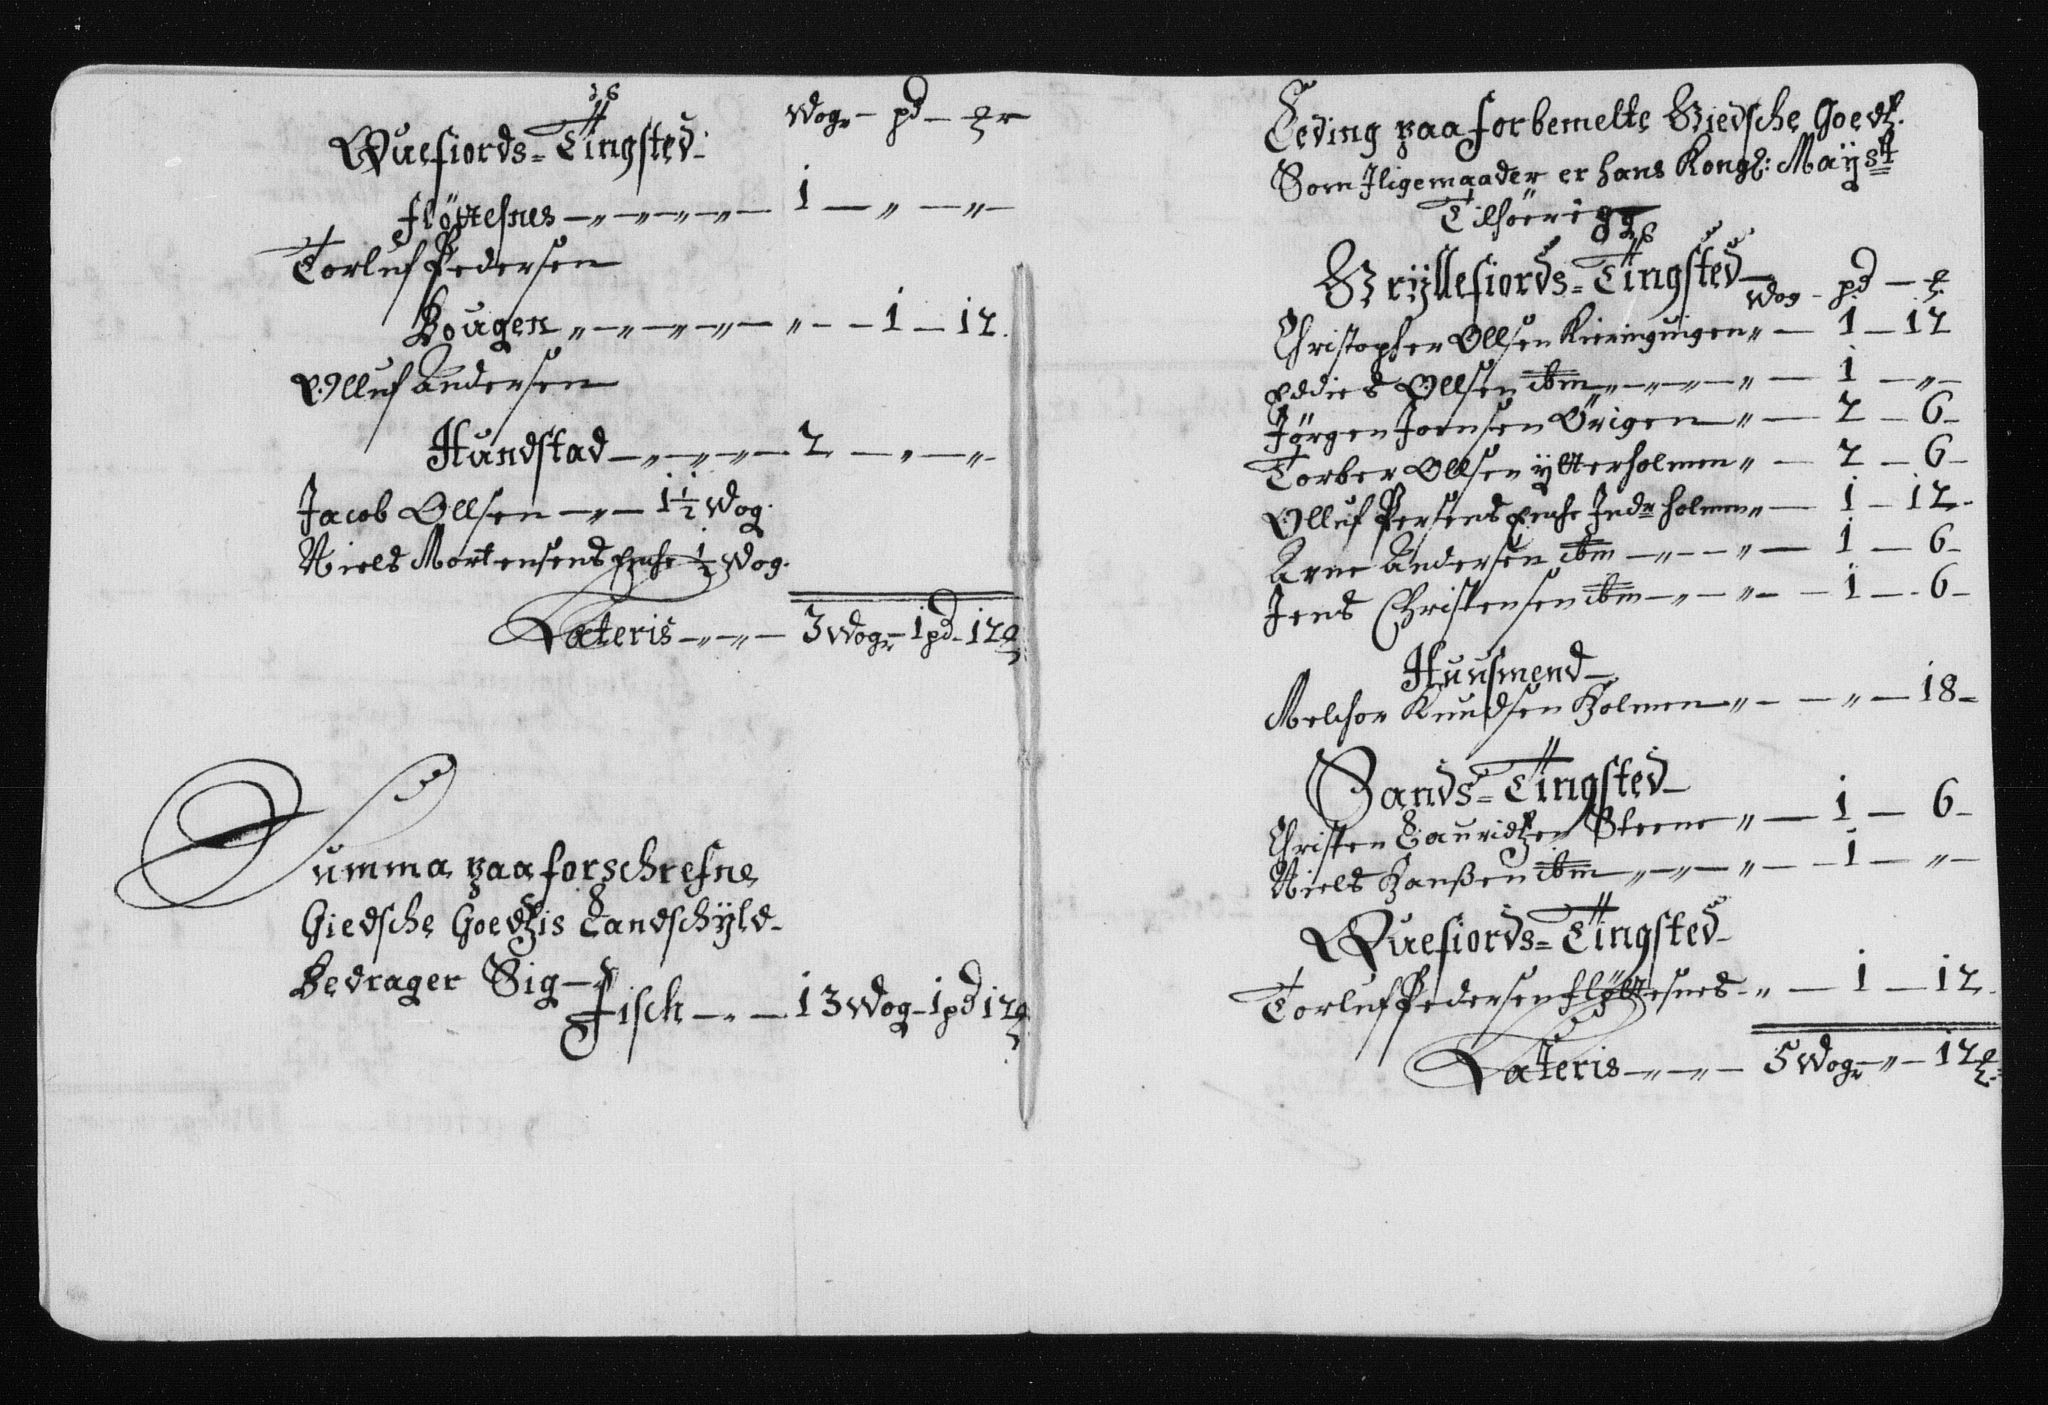 Quefiords= Tingsted. Wogr – pd – ℔r
Fløttesnes –„–„–„–„– 1 – „ – „ –
Torluf Pedersen
Bougen „–„–„–„–„– „ – 1 – 12.
Olluf Andersen
Hundstad –„–„–„–„– 2 – „ – „ –
Jacob Ollsen –„– 1½ Wog.
Niels Mortensens Enche ½ Wog.
Lateris –„–„– 3 Wogr – 1 pd – 12 ℔
Summa paa forschrefne
Giedsche Goedtzis Landschÿld
Bedrager Sig –
Fisch –„– 13 Wog – 1 pd 12 ℔
Leding paa forbemelte Giedsche Goedtz.
Som Iligemaader er hans Kongl: Maÿst
Tilhøerigg
Grÿllefiords= Tingsted
Wog – pd – ℔
Christopher Ollsen Kieringuigen „ – 1 – 12
Eddies Ollsen ibm „–„–„–„ – 1 – „ –
Jørgen Joensen Ørigen „ – 2 – 6 –
Torber Ollsen ÿtterholmen „ – 2 – 6 –
Olluf Persens Enche Indr holmen „ – 1 – 12.
Arne Andersen ibm –„–„ – 1 – 6 –
Jens Christensen ibm –„–„ – 1 – 6 –
Huusmend
Melchor Knudsen Holmen „ – „ – 18 –
Sands= Tingsted
Christen Lauridtzen Steene „ – 1 – 6 –
Niels Hanßen ibm „–„–„ – 1 – „ –
Quefiords= Tingsted
Torluf Pedersen Fløttesnes – „ – 1 – 12.
Lateris –„–„– 5 Wogr „ – 12 ℔.